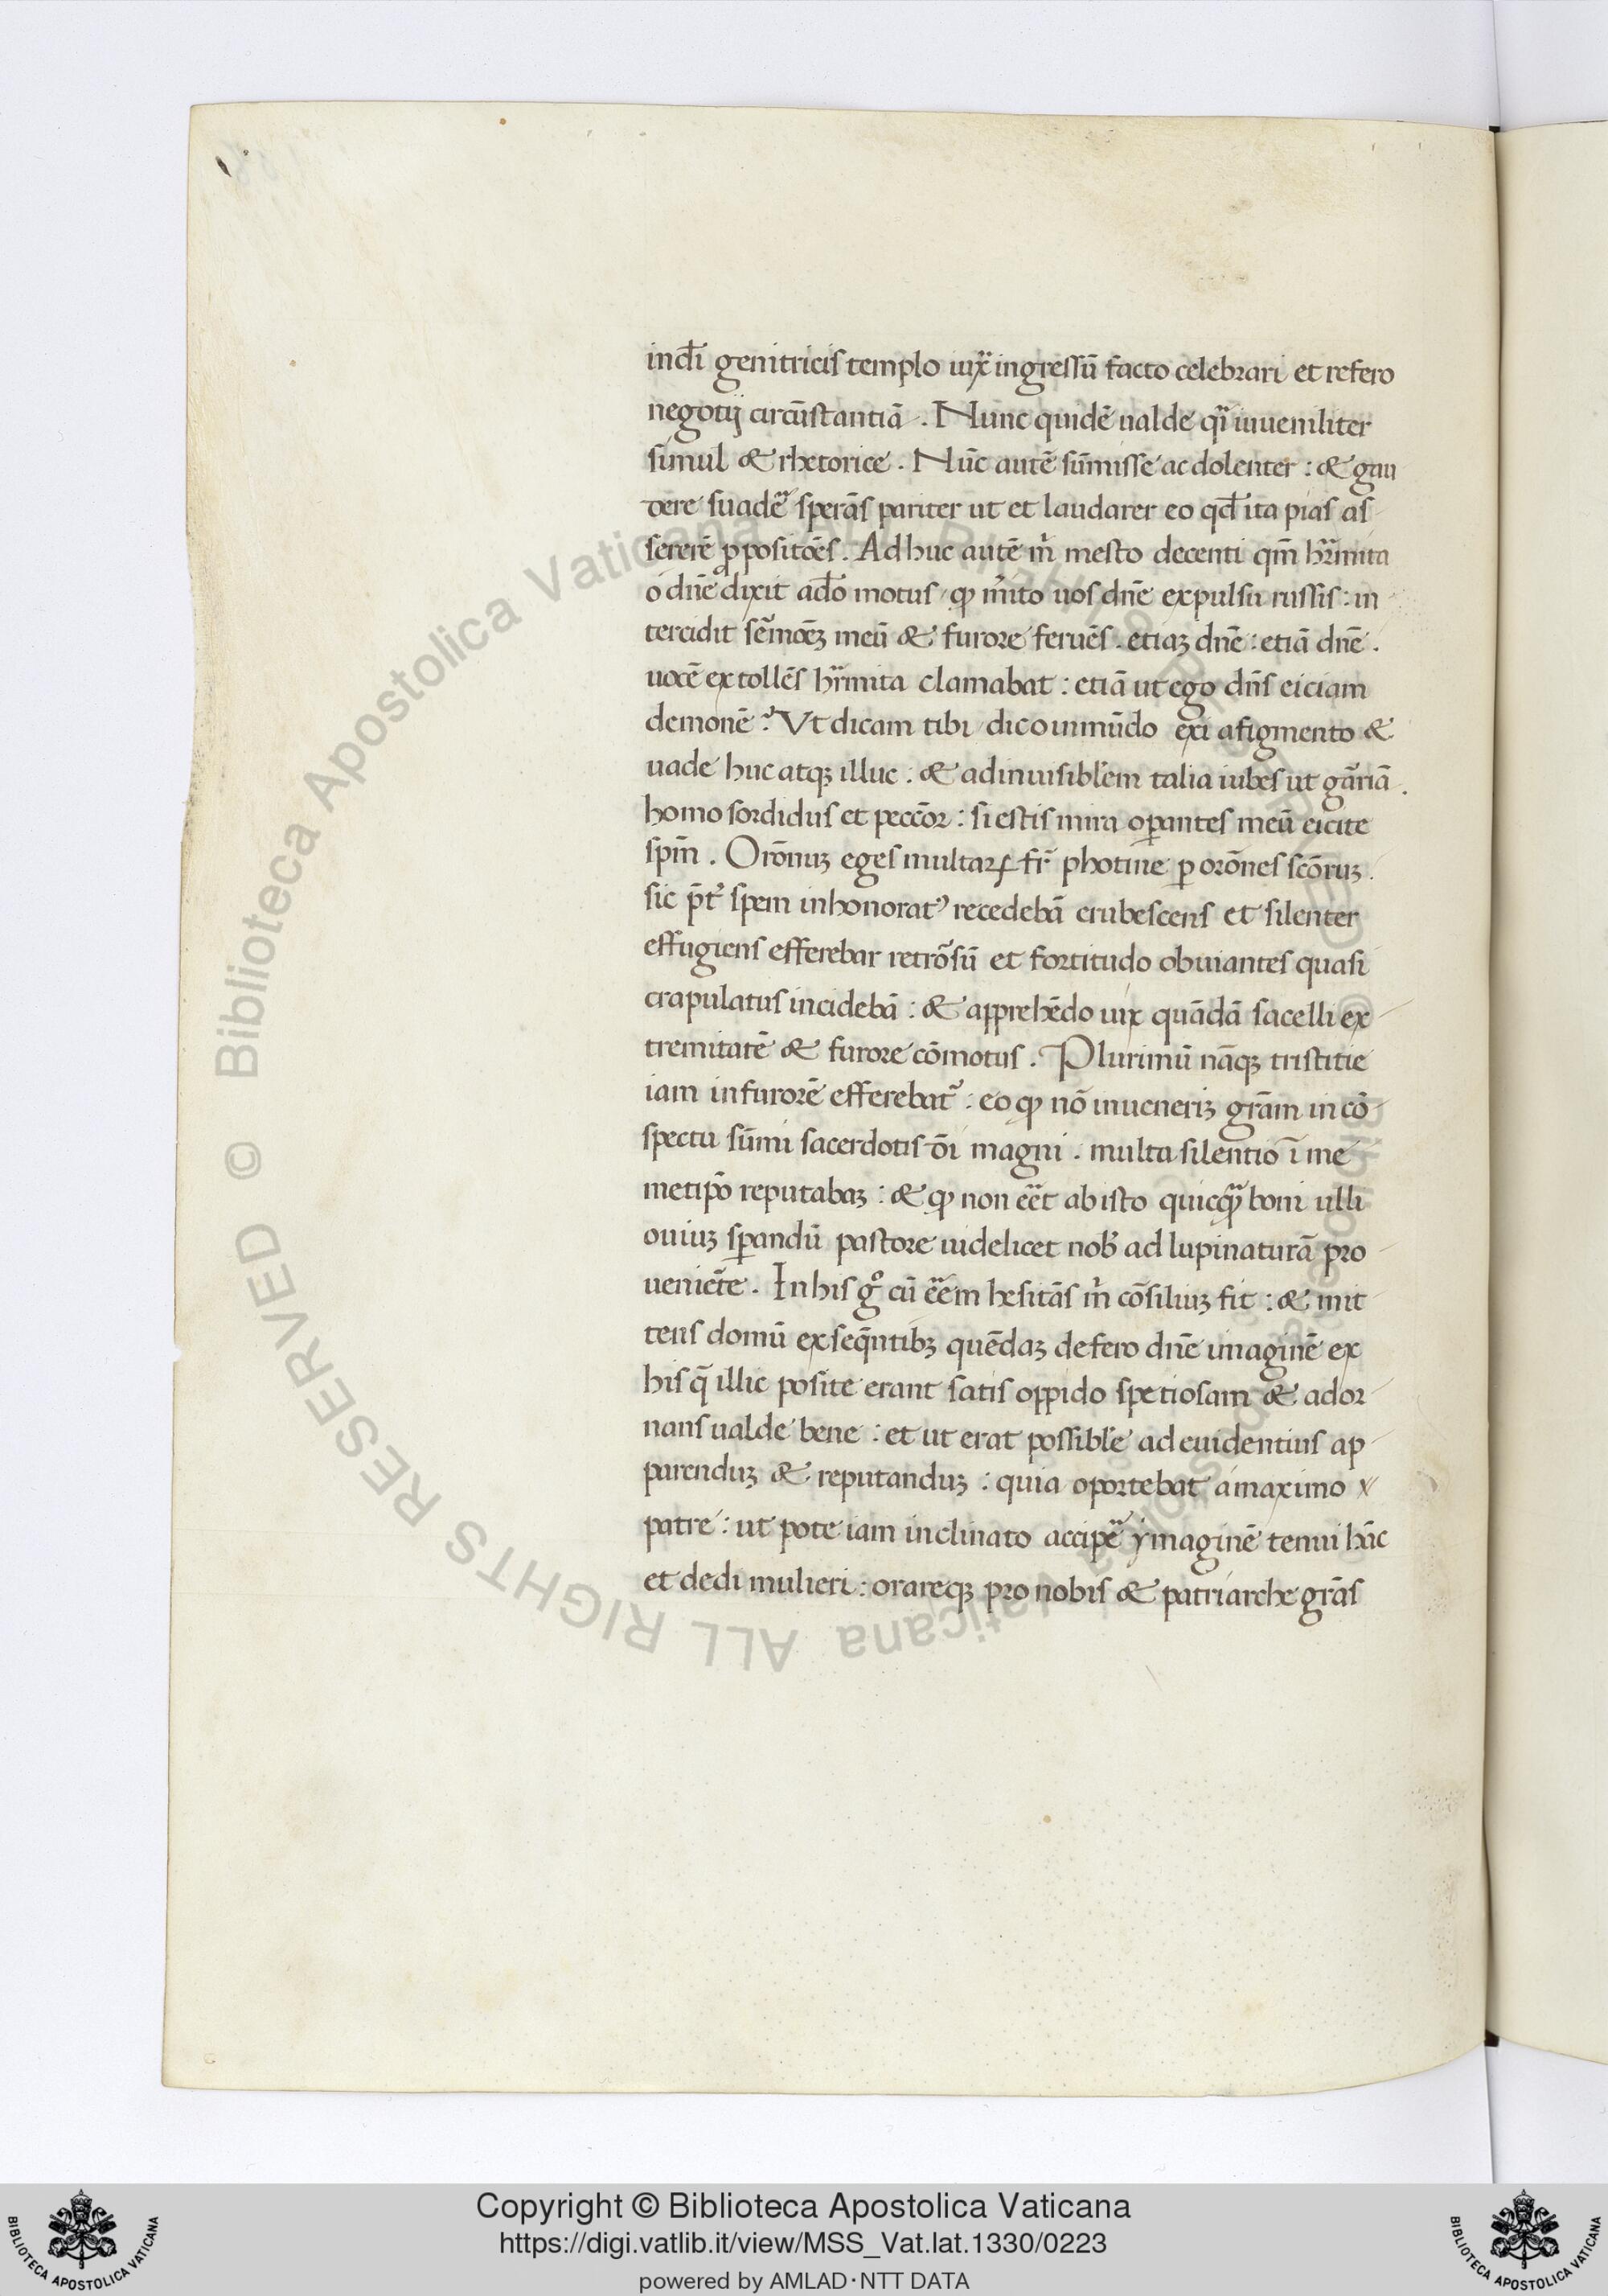 indei genitricis templo iux̃ ingressũ facto celebrari et refero
negotij circũstantiã. Nunc quidẽ ualde qr̃ iuueniliter
simul & rhetorice. Nũc autẽ sũmisse ac dolenter: & gau
dere suadẽ sperãs pariter ut et laudarer eo qđ ita pias as
sererẽ ꝓpositões. Ad huc autẽ m̃ mesto decenti qm̃ hr̃mita
o dñe dixit ađo motus / ꝙ m̃ito uos dñe expulsu russis: in
tercidit ser̃moẽꝫ meũ & furore feruẽs. etiaꝫ dñe: etiã dñe.
uocẽ extollẽs hr̃mita clamabat: etiã ut ego dñs eiciam
demonẽ? Vt dicam tibi / dico inmũdo exi a figmento &
uade huc atqꝫ illuc: & ad inuisibl̃em talia iubes ut gar̃riã.
homo sordidus et peccõr: si estis mira oꝑantes meũ eicite
spm̃. Orõnuꝫ eges multaꝝ fr̃ photine ꝑ orõnes scõruꝫ.
sic p̃t̃ spem inhonoratꝰ recedebã erubescens et silenter
effugiens efferebar retrõsũ et fortitudo obuiantes quasi
crapulatus incidebã: & apprehẽdo uix quãdã sacelli ex
tremitatẽ & furore cõmotus. Plurimũ nãqꝫ tristitie
iam in furorẽ efferebat̃: eo ꝙ nõ inueneriꝫ gr̃am in cõ
spectu sũmi sacerdotis õi magni. multa silentio ĩ me
metip̃o reputabaꝫ: & ꝙ non eẽt ab isto quicq̃ boni ulli
ouiuꝫ sꝑandũ pastore uidelicet nob̃ ad lupi naturã pro
ueniẽte. In his gͦ cũ eẽm hesitãs m̃ cõsiliuꝫ fit: & mit
tens domũ exseq̃ntibꝫ quẽdaꝫ defero dñe imaginẽ ex
his q̃ illic posite erant satis oppido spetiosam & ador
nans ualde bene: et ut erat possibl̃e ad euidentius ap
parenduꝫ & reputanduꝫ: quia oportebat a maximo
patre: ut pote iam inclinato accipẽ ymaginẽ tenui hãc
et dedi mulieri: orareqꝫ pro nobis & patriarche gr̃as
Copyright © Biblioteca Apostolica Vaticana
https://digi.vatlib.it/view/MSS_Vat.lat.1330/0223
powered by AMLAD·NTT DATA
BIBLIOTECA APOSTOLICA VATICANA
BIBLIOTECA APOSTOLICA VATICANA
© Biblioteca Apostolica Vaticana ALL RIGHTS RESERVED © Biblioteca Apostolica Vaticana ALL RIGHTS RESERVED